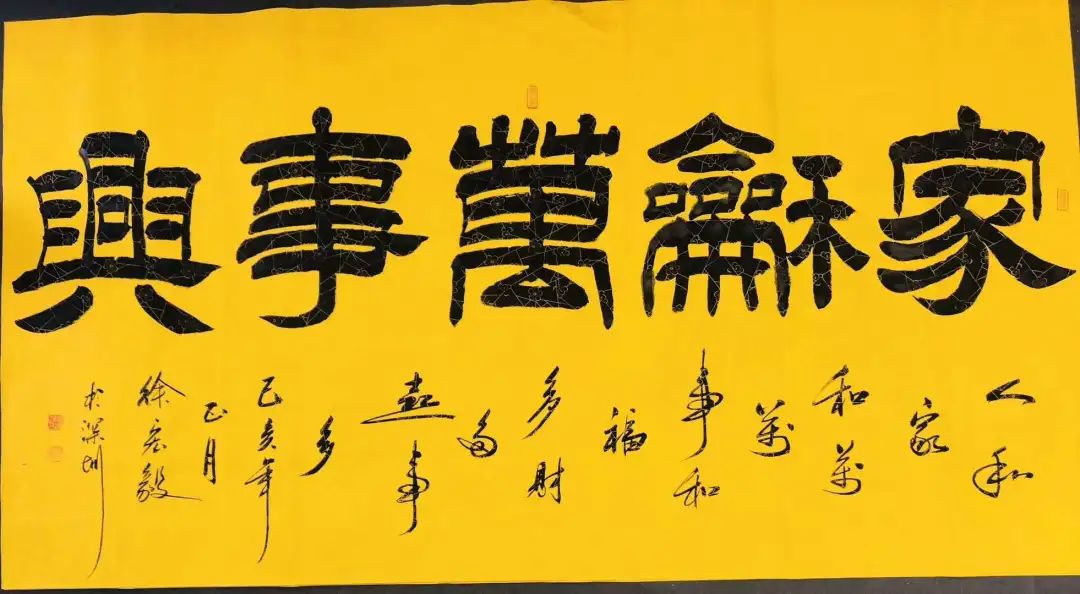 家龢萬事興
人和
家
和萬
萬
事和
福
多財
多
喜事
多
己亥年
正月
徐宏毅
於深圳